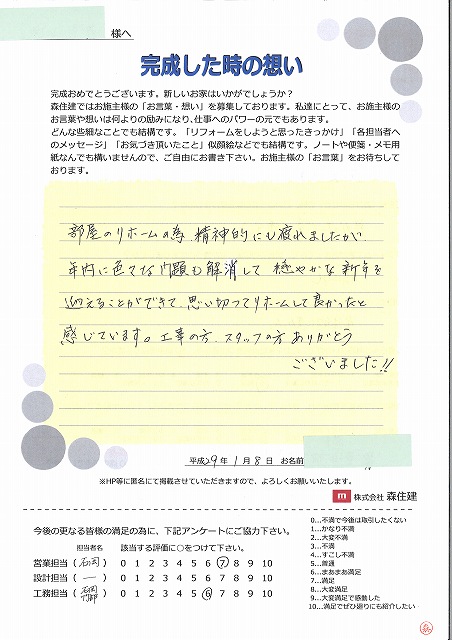 様へ
完成した時の想い
完成おめでとうございます。新しいお家はいかがでしょうか？
森住建ではお施主様の「お言葉・想い」を募集しております。私達にとって、お施主様の
お言葉や想いは何よりの励みになり、仕事へのパワーの元でもあります。
どんな些細なことでも結構です。「リフォームをしようと思ったきっかけ」「各担当者へ
のメッセージ」「お気づき頂いたこと」似顔絵などでも結構です。ノートや便箋・メモ用
紙なんでも構いませんので、ご自由にお書き下さい。お施主様の「お言葉」をお待ちして
おります。
部屋のリホームの為、精神的にも疲れましたが、
年内に色々な問題も解消して 穏やかな新年を
迎えることができて、思い切ってリホームして良かったと
感じています。工事の方、スタッフの方ありがとう
ございました!!
平成29年 1月 8日 お名前
※HP等に匿名にて掲載させていただきますので、よろしくお願いいたします。
m 株式会社 森住建
今後の更なる皆様の満足の為に、下記アンケートにご協力下さい。
担当者名 該当する評価に○をつけて下さい。
営業担当 (石岡) 0 1 2 3 4 5 6 7 8 9 10
設計担当 ( ー ) 0 1 2 3 4 5 6 7 8 9 10
工務担当 ( ) 0 1 2 3 4 5 6 7 8 9 10
0…不満で今後は取引したくない
1…かなり不満
2…大変不満
3…不満
4…すこし不満
5…普通
6…まあまあ満足
7…満足
8…大変満足
9…大変満足で感動した
10…満足でぜひ造りにも紹介したい